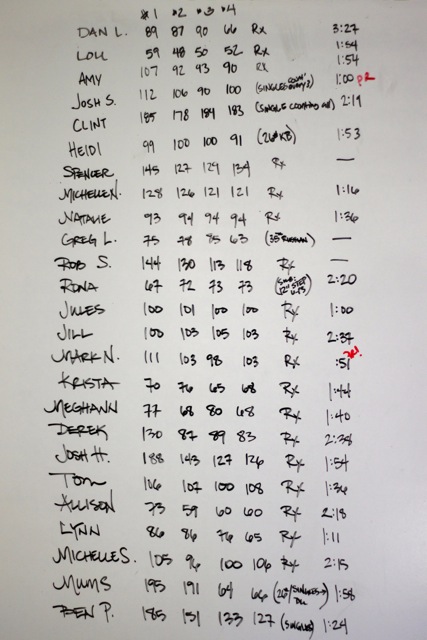 #1 #2 #3 #4
DAN L. 89 87 90 66 Rx 3:27
LOU 59 48 50 52 Rx 1:54
AMY 107 92 93 90 Rx 1:54
JOSH S. 112 106 90 100 (SINGLES 1:00 PR
CLINT 185 178 184 183 (SINGLE 2:19
HEIDI 99 100 100 91 (26# KB) 1:53
SPENCER 145 127 129 134 Rx —
MICHELLE N. 128 126 121 121 Rx 1:16
NATALIE 93 94 94 94 Rx 1:36
GREG L. 75 78 85 63 (35# RUSSIAN) —
ROB S. 144 130 113 118 Rx —
RONA 67 72 73 73 12" STEP 2:20
JULES 100 101 100 100 Rx 1:00
JILL 100 103 105 103 Rx 2:37
MARK N. 111 103 98 103 Rx :51
KRISTA 70 76 65 68 Rx 1:44
MEGHANN 77 68 80 68 Rx 1:40
DEREK 130 87 89 83 Rx 2:38
JOSH H. 188 143 127 126 Rx 1:54
TOM 116 107 100 108 Rx 1:36
ALLISON 73 59 60 60 Rx 2:18
LYNN 86 86 76 65 Rx 1:11
MICHELLE S. 105 96 100 106 Rx 2:15
MUMS 193 191 64 66 (26#/SINGLES→ DU 1:58
BEN P. 185 151 133 127 (SINGLES) 1:24